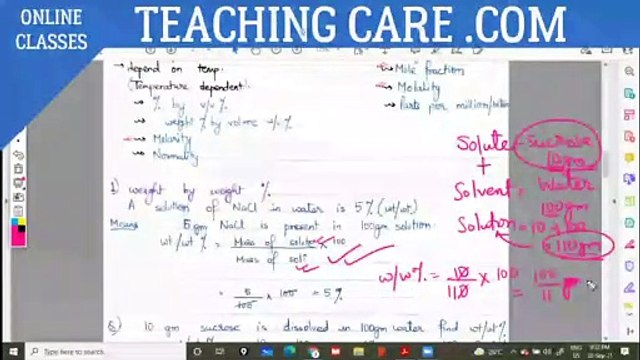 ONLINE
CLASSES
TEACHING CARE .COM
→ depend on temp.
(Temperature dependent)
→ % by v/v %
→ weight % by volume w/v %
→ Molarity
→ Normality
→ Mole fraction
→ Molality
→ Parts per million/
1) weight by weight %.
A solution of NaCl in water is 5% (wt/wt)
Means 5 gm NaCl is present in 100gm solution.
wt/wt % = Mass of solute × 100
Mass of sol
= 5/100 × 100 = 5%
Q) 10 gm sucrose is dissolved in 100gm water find wt/wt %
Solute = Sucrose
10gm
+
Solvent = Water
100gm
Solution = 10 + 100
= 110gm
w/w % = 10/110 × 100 = 100/11
ENG